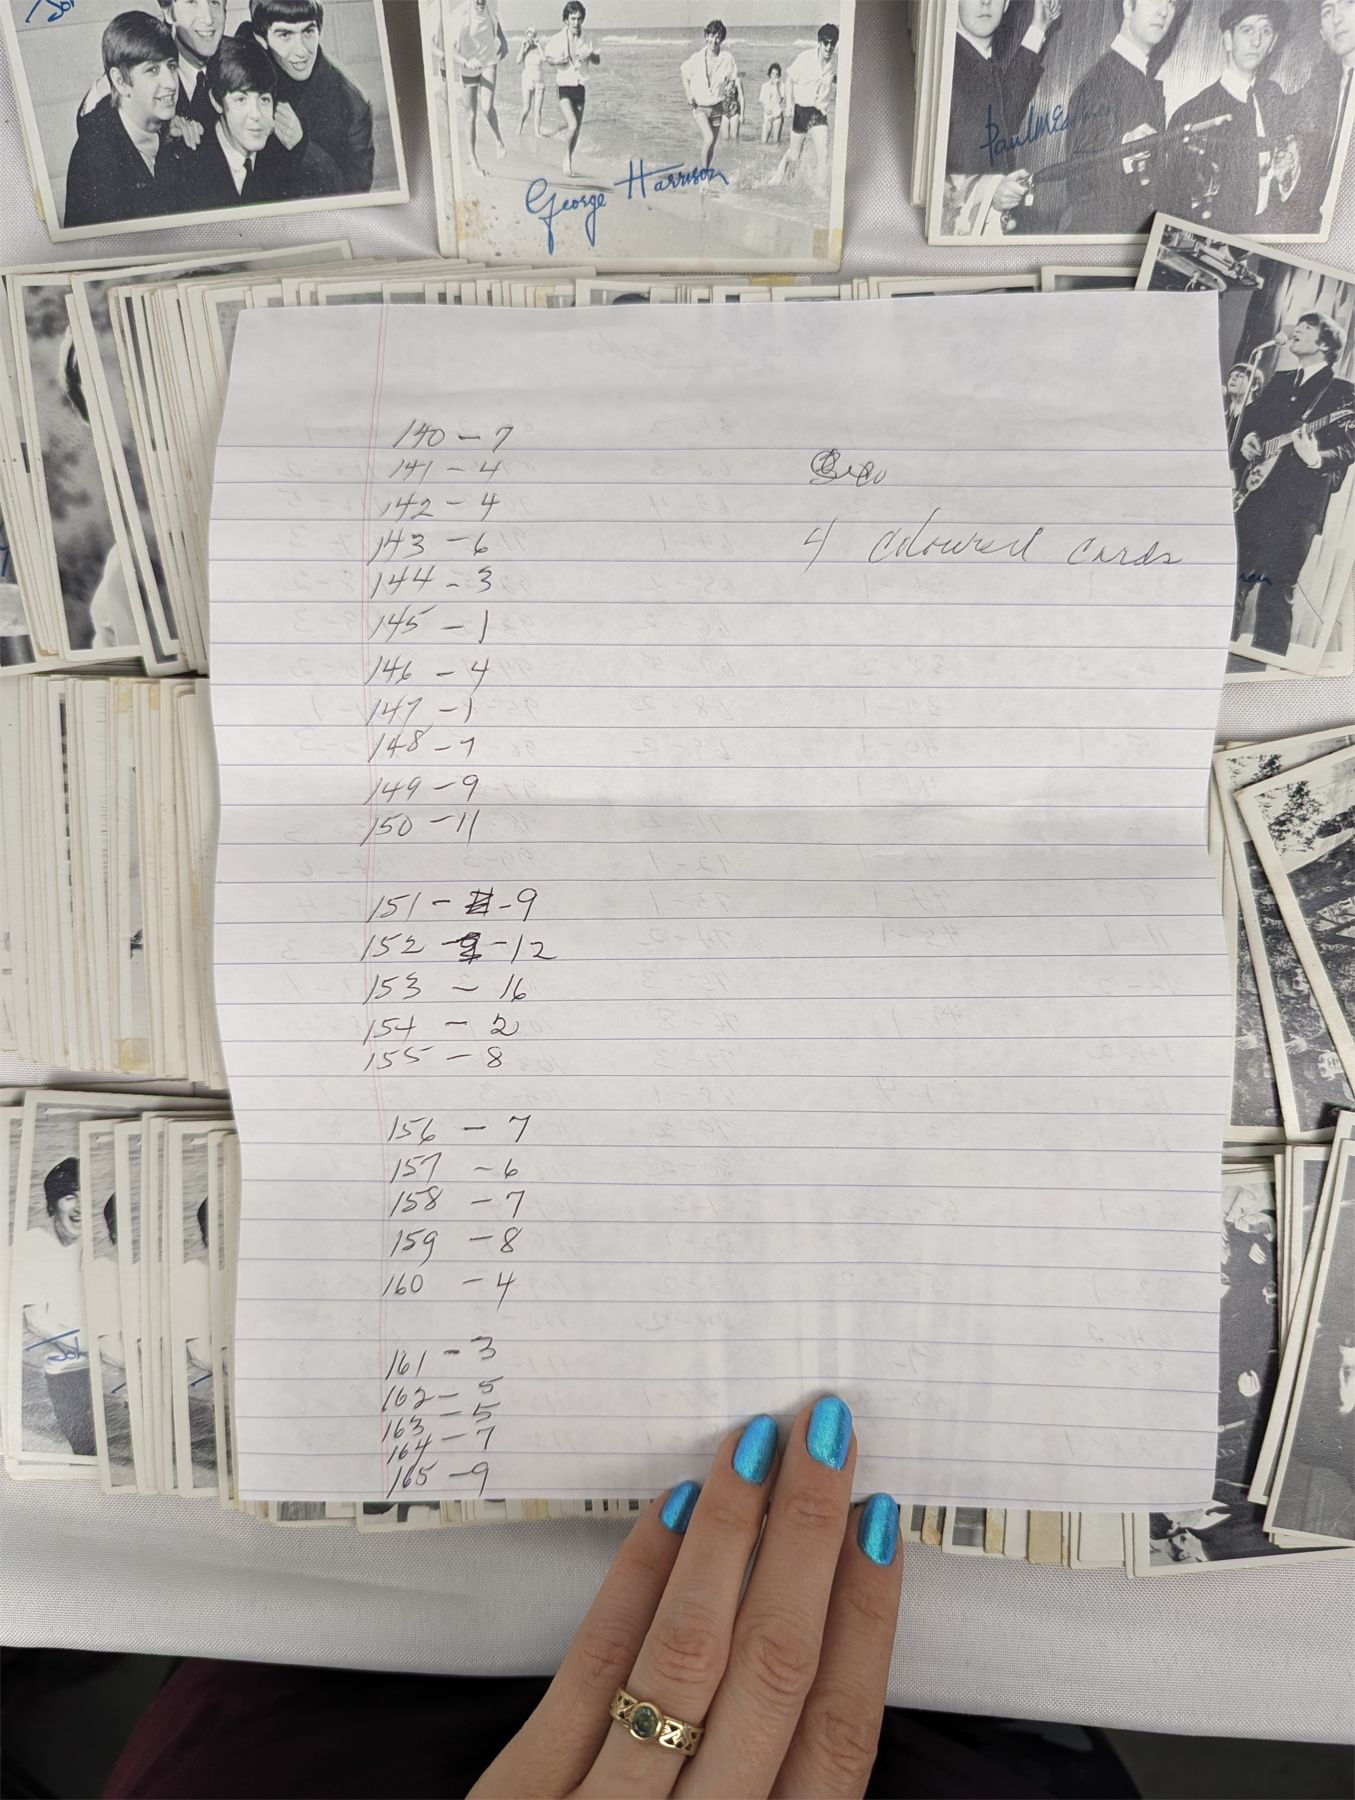 George Harrison
140 - 7
141 - 4
142 - 4
143 - 6
144 - 3
145 - 1
146 - 4
147 - 1
148 - 7
149 - 9
150 - 11
151 - 9
152 - 12
153 - 16
154 - 2
155 - 8
156 - 7
157 - 6
158 - 7
159 - 8
160 - 4
161 - 3
162 - 5
163 - 5
164 - 7
165 - 9
4 coloured cards